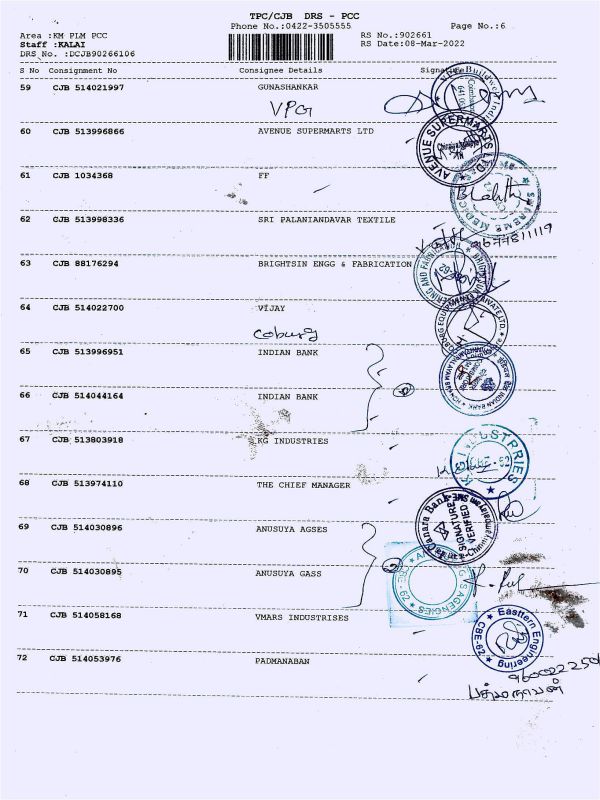 TPC/CJB DRS - PCC
Phone No.:0422-3505555 Page No.:6
Area :KM PLM PCC RS No.:902661
Staff :KALAI RS Date:08-Mar-2022
DRS No. :DCJB90266106
S No Consignment No Consignee Details Signature
59 CJB 514021997 GUNASHANKAR
VPG
60 CJB 513996866 AVENUE SUPERMARTS LTD
AVENUE SUPERMARTS LTD
61 CJB 1034368 FF
62 CJB 513998336 SRI PALANIANDAVAR TEXTILE
9677811119
63 CJB 88176294 BRIGHTSIN ENGG & FABRICATION
64 CJB 514022700 VIJAY
coburg
65 CJB 513996951 INDIAN BANK
66 CJB 514044164 INDIAN BANK
2
INDIAN BANK
67 CJB 513803918 KG INDUSTRIES
68 CJB 513974110 THE CHIEF MANAGER
Canara Bank
SIGNATURE
VERIFIED
69 CJB 514030896 ANUSUYA AGSES
70 CJB 514030895 ANUSUYA GASS
2
AGENCIES
71 CJB 514058168 VMARS INDUSTRISES
Eastern Engineering
CBE-62
72 CJB 514053976 PADMANABAN
பத்மநாபன்